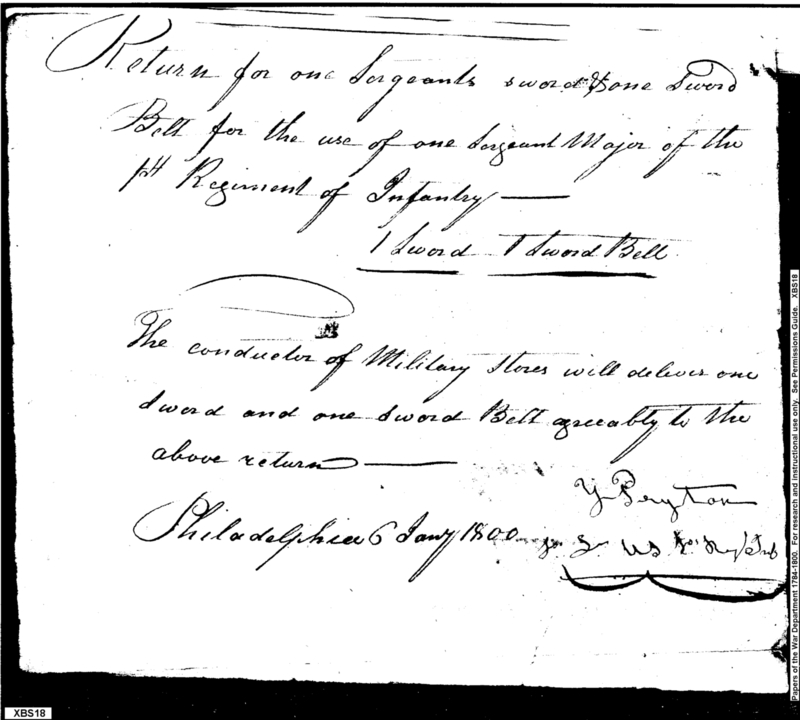 Return for one Sergeants sword & one Sword
Belt for the use of one Sergeant Major of the
1st Regiment of Infantry —
1 Sword 1 Sword Belt
The conductor of Military Stores will deliver one
sword and one sword Belt agreeably to the
above return —
Y Peyton
Philadelphia 6 Jany 1800
US
XBS18
Papers of the War Department 1784-1800. For research and instructional use only. See Permissions Guide. XBS18